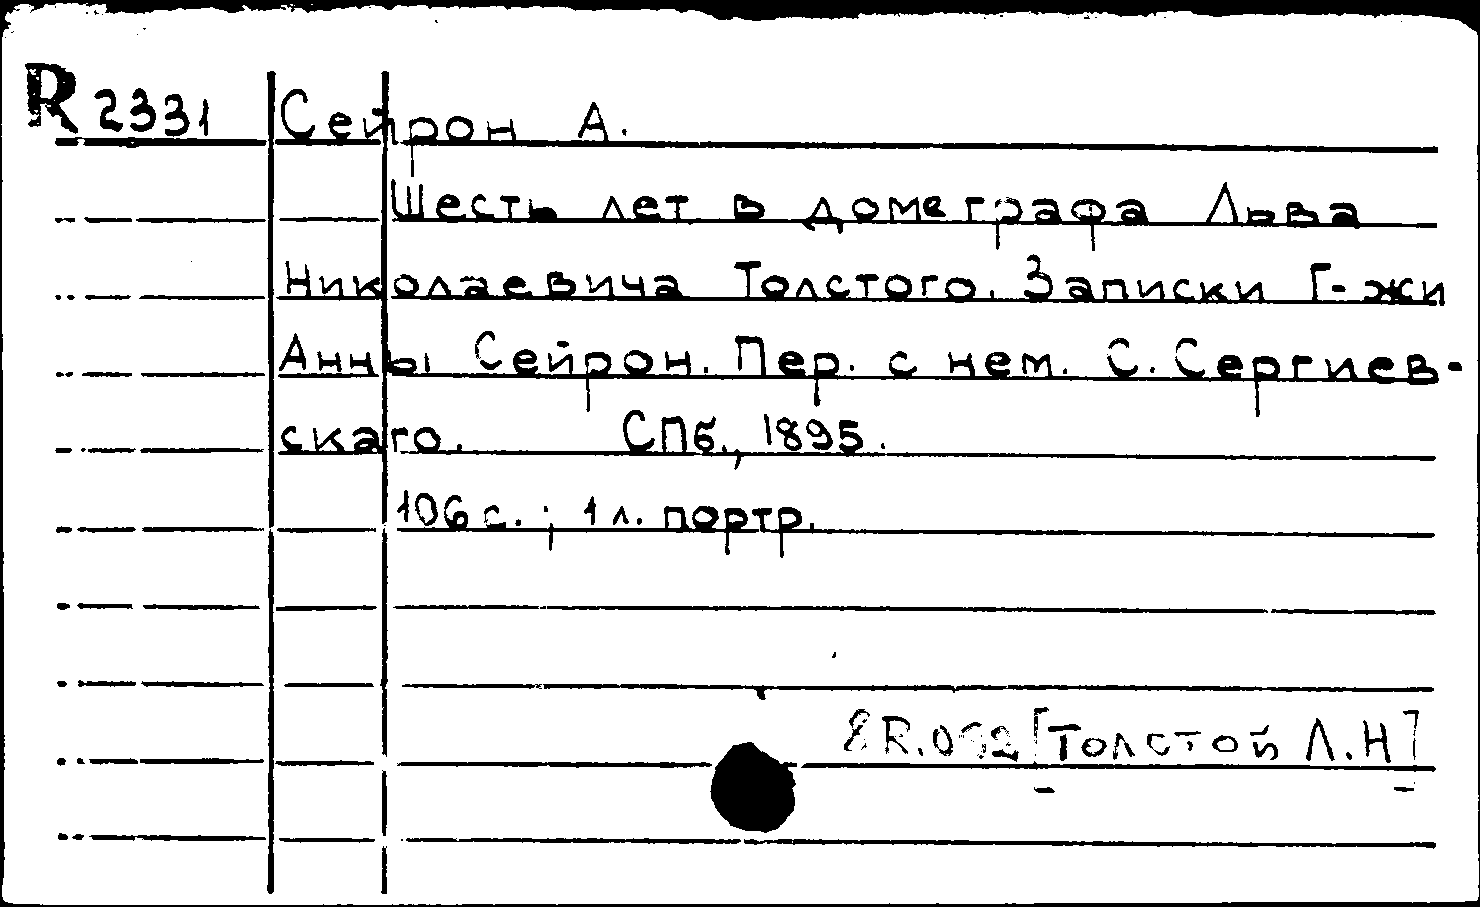 R 2331 Сейрон А.
Шесть лет в доме графа Льва
Николаевича Толстого. Записки Г-жи
Анны Сейрон. Пер. с нем. С. Сергиев-
скаго. СПб., 1895.
106 с. ; 1 л. портр.
8R.092 [Толстой Л.Н]